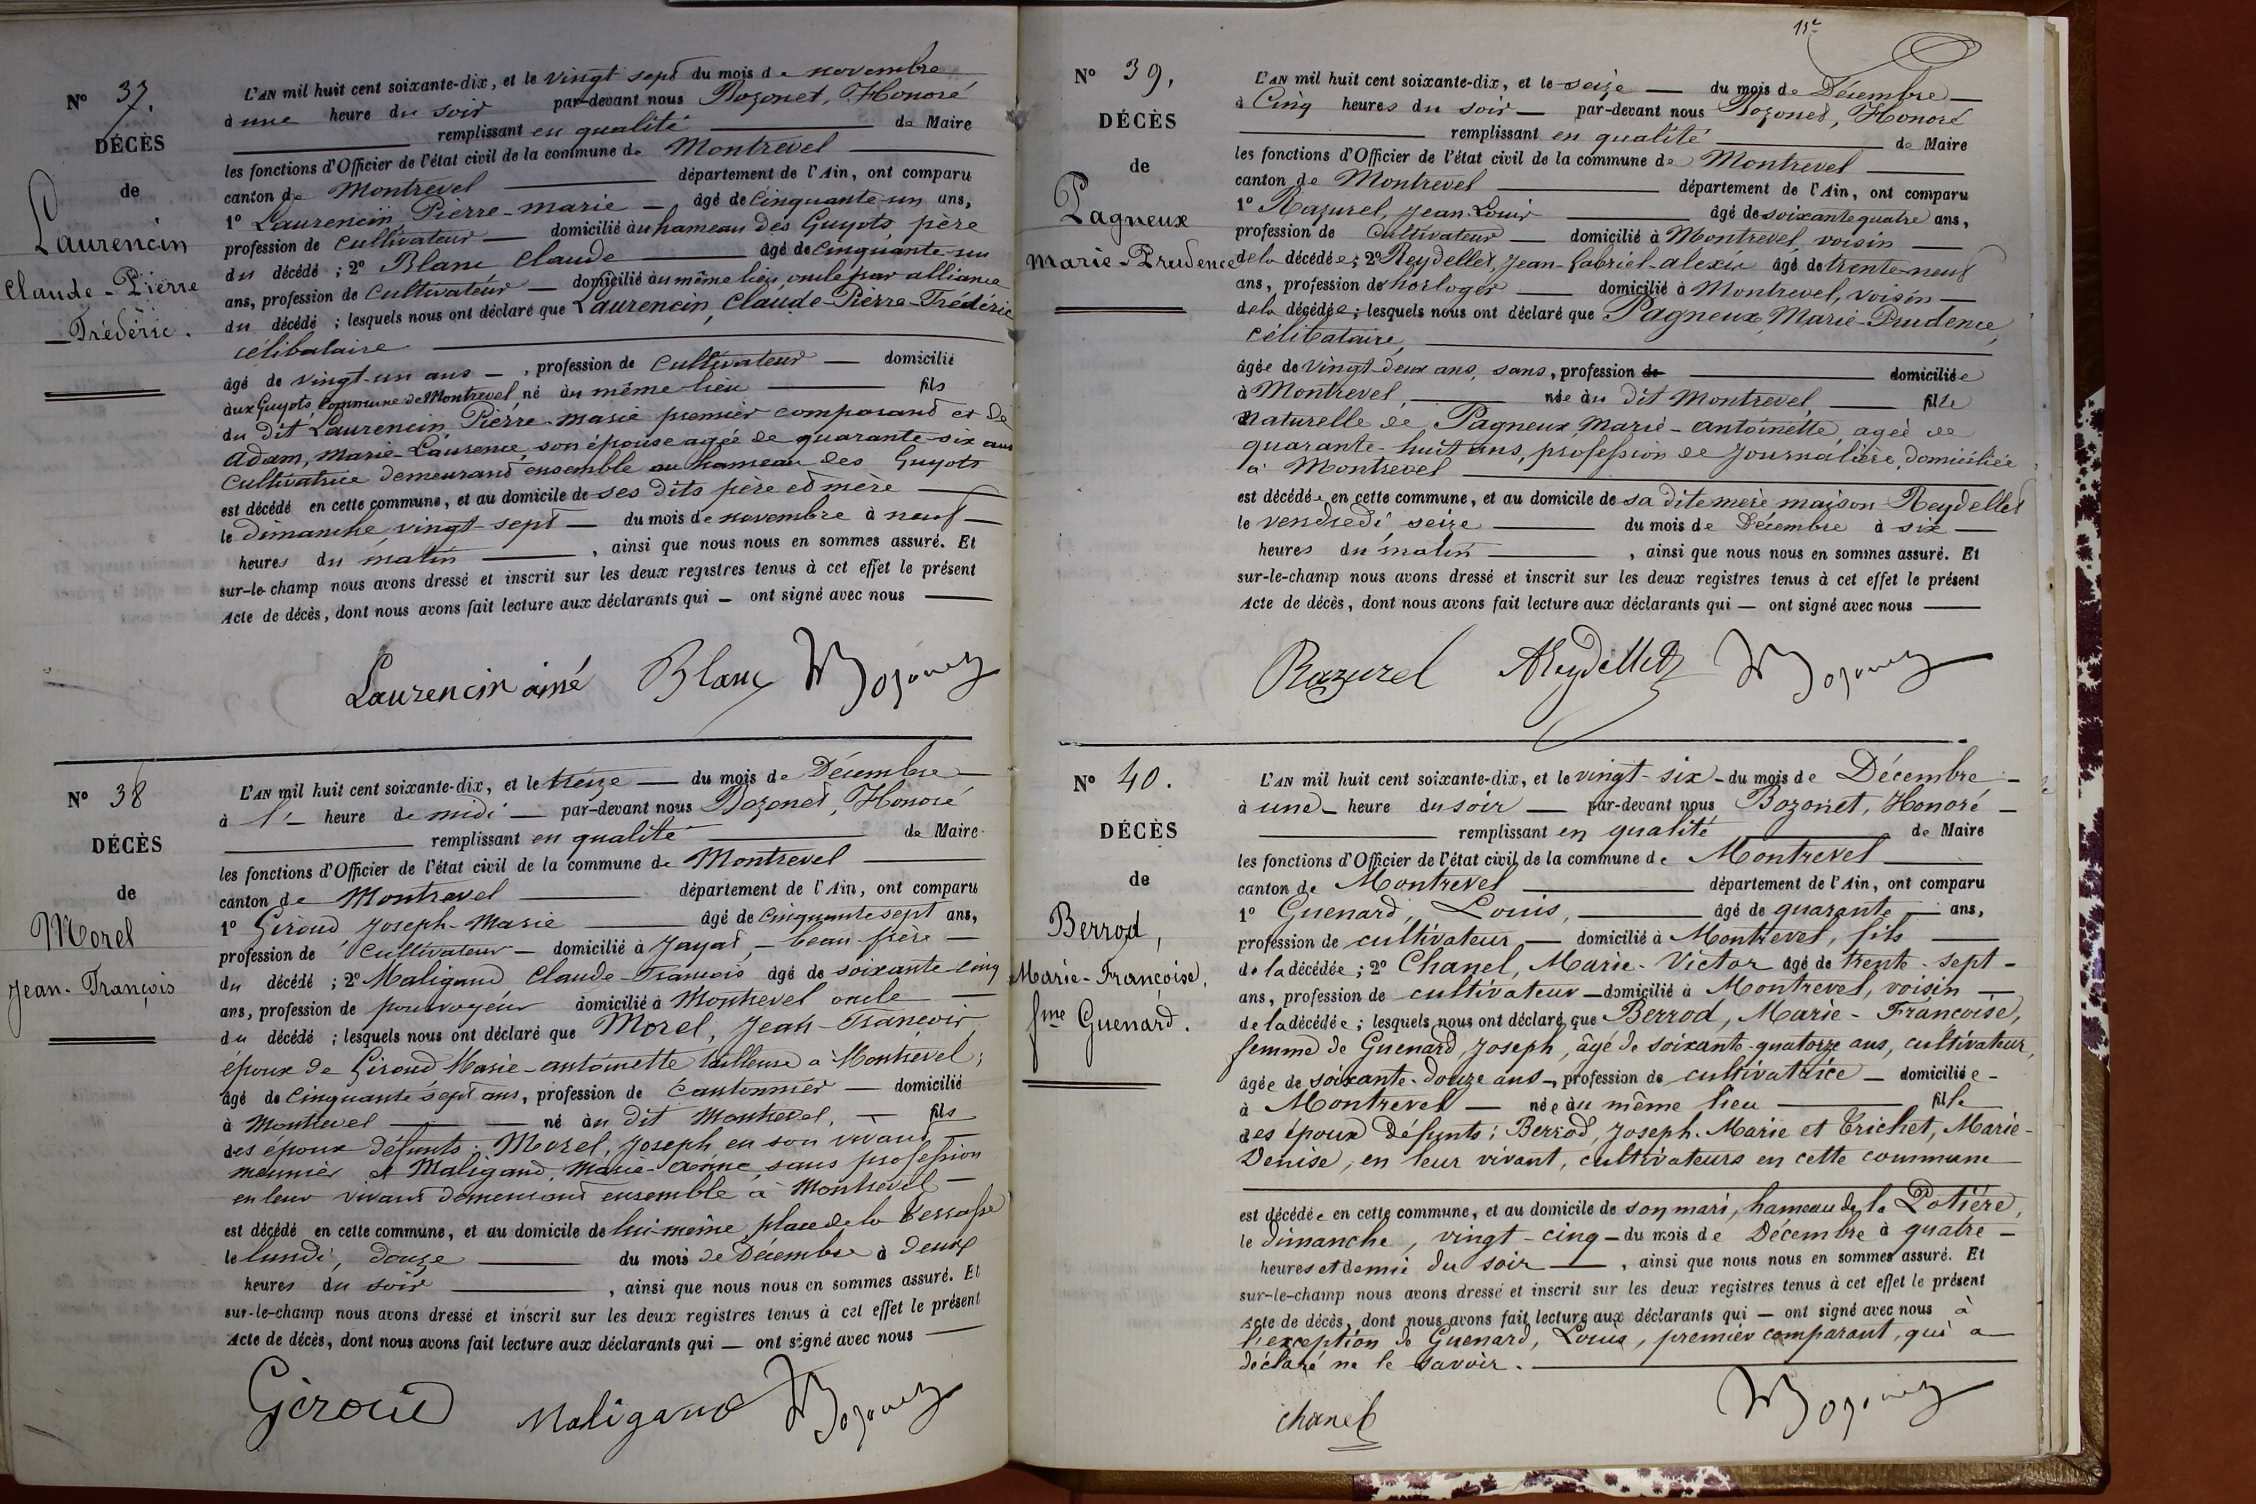 N° 37.
DÉCÈS
de
Laurencin
Claude-Pierre
Frédéric.
L'AN mil huit cent soixante-dix, et le vingt sept du mois de novembre
à une heure du soir par-devant nous Bozonet, Honoré
remplissant en qualité de Maire
les fonctions d'Officier de l'état civil de la commune de Montrevel
canton de Montrevel département de l'Ain, ont comparu
1° Laurencin Pierre-marie âgé de cinquante-un ans,
profession de cultivateur domicilié au hameau des Guyots père
du décédé ; 2° Blanc Claude âgé de cinquante-un
ans, profession de cultivateur domicilié au même lieu, oncle par alliance
du décédé ; lesquels nous ont déclaré que Laurencin, Claude-Pierre-Frédéric
célibataire
âgé de vingt-un ans, profession de cultivateur domicilié
aux Guyots, commune de Montrevel né au même lieu fils
du dit Laurencin Pierre-marie premier comparant et de
Adam, Marie-Laurence, son épouse agée de quarante-six ans
cultivatrice demeurant ensemble au hameau des Guyots
est décédé en cette commune, et au domicile de ses dits père et mère
le dimanche vingt-sept du mois de novembre à neuf
heures du matin, ainsi que nous nous en sommes assuré. Et
sur-le-champ nous avons dressé et inscrit sur les deux registres tenus à cet effet le présent
Acte de décès, dont nous avons fait lecture aux déclarants qui — ont signé avec nous
Laurencin ainé Blanc Bozonet
N° 38
DÉCÈS
de
Morel
Jean-François
L'AN mil huit cent soixante-dix, et le treize du mois de Décembre
à 1 heure de midi par-devant nous Bozonet, Honoré
remplissant en qualité de Maire
les fonctions d'Officier de l'état civil de la commune de Montrevel
canton de Montrevel département de l'Ain, ont comparu
1° Giroud Joseph-Marie âgé de cinquante sept ans,
profession de cultivateur domicilié à Jayat, beau frère
du décédé ; 2° Maligand Claude-François âgé de soixante-cinq
ans, profession de pourvoyeur domicilié à Montrevel oncle
du décédé ; lesquels nous ont déclaré que Morel, Jean-François
époux de Giroud Marie-antoinette tailleuse à Montrevel;
âgé de cinquante sept ans, profession de cantonnier domicilié
à Montrevel né au dit Montrevel, fils
des époux défunts; Morel, Joseph en son vivant
meunier et Maligand, Marie- sans profession
en leur vivant demeurant ensemble à Montrevel
est décédé en cette commune, et au domicile de lui-même place de la
le lundi, douze du mois de Décembre à deux
heures du soir, ainsi que nous nous en sommes assuré. Et
sur-le-champ nous avons dressé et inscrit sur les deux registres tenus à cet effet le présent
Acte de décès, dont nous avons fait lecture aux déclarants qui — ont signé avec nous
Giroud Maligand Bozonet
15e
N° 39,
DÉCÈS
de
Pagneux
Marie-Prudence
L'AN mil huit cent soixante-dix, et le seize du mois de Décembre
à Cinq heures du soir par-devant nous Bozonet, Honoré
remplissant en qualité de Maire
les fonctions d'Officier de l'état civil de la commune de Montrevel
canton de Montrevel département de l'Ain, ont comparu
1° Razurel, Jean-Louis âgé de soixante quatre ans,
profession de cultivateur domicilié à Montrevel, voisin
de la décédée; 2° Reydellet, Jean-Gabriel-alexis âgé de trente-neuf
ans, profession de horloger domicilié à Montrevel, voisin
de la décédée; lesquels nous ont déclaré que Pagneux, Marie-Prudence,
célibataire,
âgée de vingt-deux ans, sans, profession de domiciliée
à Montrevel, née au dit Montrevel, fille
naturelle de Pagneux Marie-antoinette, agée de
quarante-huit ans, profession de Journalière, domiciliée
à Montrevel
est décédée en cette commune, et au domicile de sa dite mère maison Reydellet
le vendredi seize du mois de Décembre à six
heures du matin, ainsi que nous nous en sommes assuré. Et
sur-le-champ nous avons dressé et inscrit sur les deux registres tenus à cet effet le présent
Acte de décès, dont nous avons fait lecture aux déclarants qui — ont signé avec nous
Razurel AReydellet Bozonet
N° 40.
DÉCÈS
de
Berrod,
Marie-Françoise,
fme Guenard.
L'AN mil huit cent soixante-dix, et le vingt-six du mois de Décembre
à une heure du soir par-devant nous Bozonet, Honoré
remplissant en qualité de Maire
les fonctions d'Officier de l'état civil de la commune de Montrevel
canton de Montrevel département de l'Ain, ont comparu
1° Guenard, Louis, âgé de quarante ans,
profession de cultivateur domicilié à Montrevel, fils
de la décédée ; 2° Chanel, Marie-Victor âgé de trente-sept
ans, profession de cultivateur domicilié à Montrevel, voisin
de la décédée ; lesquels nous ont déclaré que Berrod, Marie-Françoise,
femme de Guenard, Joseph, âgé de soixante-quatorze ans, cultivateur,
âgée de soixante-douze ans, profession de cultivatrice domiciliée
à Montrevel née au même lieu fille
des époux défunts: Berrod, Joseph-Marie et Trichet, Marie-
Denise, en leur vivant, cultivateurs en cette commune
est décédée en cette commune, et au domicile de son mari, hameau de la Potière,
le dimanche, vingt-cinq du mois de Décembre à quatre
heures et demie du soir, ainsi que nous nous en sommes assuré. Et
sur-le-champ nous avons dressé et inscrit sur les deux registres tenus à cet effet le présent
Acte de décès, dont nous avons fait lecture aux déclarants qui — ont signé avec nous à
l'exception de Guenard, Louis, premier comparant, qui a
déclaré ne le savoir.
Chanel Bozonet